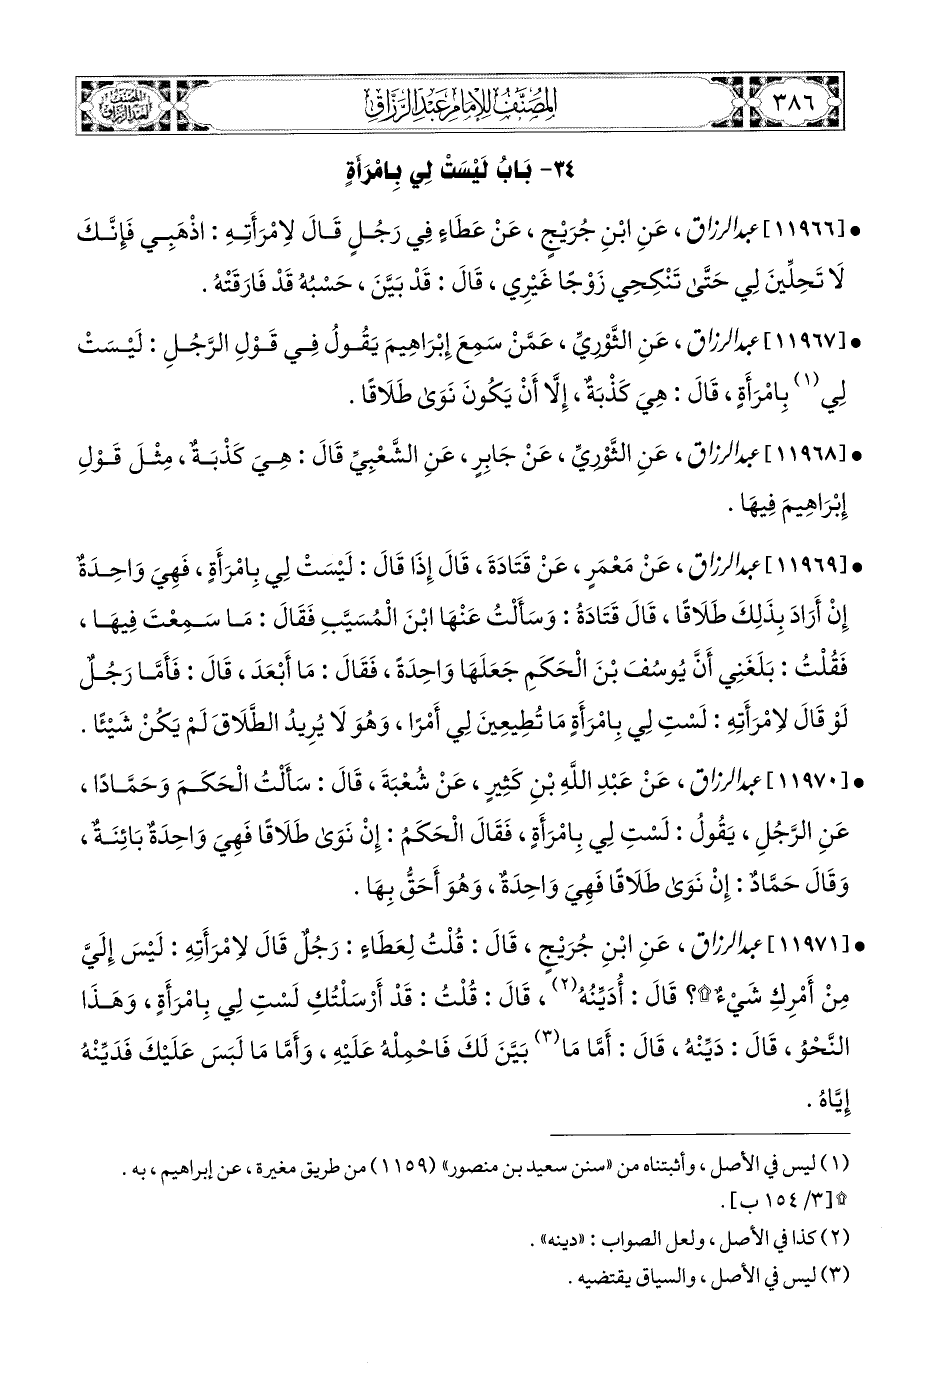 ٣٨٦
المصنف للإمام عبد الرزاق
المصنف لعبد الرزاق
٣٤- بَابُ لَيْسَتْ لِي بِامْرَأَةٍ
• [١١٩٦٦] عبد الرزاق، عَنِ ابْنِ جُرَيْجٍ، عَنْ عَطَاءٍ فِي رَجُلٍ قَالَ لِامْرَأَتِهِ: اذْهَبِي فَإِنَّكَ
لَا تَحِلِّينَ لِي حَتَّى تَنْكِحِي زَوْجًا غَيْرِي، قَالَ: قَدْ بَيَّنَ، حَسْبُهُ قَدْ فَارَقَتْهُ.
• [١١٩٦٧] عبد الرزاق، عَنِ الثَّوْرِيِّ، عَمَّنْ سَمِعَ إِبْرَاهِيمَ يَقُولُ فِي قَوْلِ الرَّجُلِ: لَيْسَتْ
لِي (١) بِامْرَأَةٍ، قَالَ: هِيَ كَذْبَةٌ، إِلَّا أَنْ يَكُونَ نَوَى طَلَاقًا.
• [١١٩٦٨] عبد الرزاق، عَنِ الثَّوْرِيِّ، عَنْ جَابِرٍ، عَنِ الشَّعْبِيِّ قَالَ: هِيَ كَذْبَةٌ، مِثْلَ قَوْلِ
إِبْرَاهِيمَ فِيهَا.
• [١١٩٦٩] عبد الرزاق، عَنْ مَعْمَرٍ، عَنْ قَتَادَةَ، قَالَ إِذَا قَالَ: لَيْسَتْ لِي بِامْرَأَةٍ، فَهِيَ وَاحِدَةٌ
إِنْ أَرَادَ بِذَلِكَ طَلَاقًا، قَالَ قَتَادَةُ: وَسَأَلْتُ عَنْهَا ابْنَ الْمُسَيَّبِ فَقَالَ: مَا سَمِعْتَ فِيهَا،
فَقُلْتُ: بَلَغَنِي أَنَّ يُوسُفَ بْنَ الْحَكَمِ جَعَلَهَا وَاحِدَةً، فَقَالَ: مَا أَبْعَدَ، قَالَ: فَأَمَّا رَجُلٌ
لَوْ قَالَ لِامْرَأَتِهِ: لَسْتِ لِي بِامْرَأَةٍ مَا تُطِيعِينَ لِي أَمْرًا، وَهُوَ لَا يُرِيدُ الطَّلَاقَ لَمْ يَكُنْ شَيْئًا.
• [١١٩٧٠] عبد الرزاق، عَنْ عَبْدِ اللَّهِ بْنِ كَثِيرٍ، عَنْ شُعْبَةَ، قَالَ: سَأَلْتُ الْحَكَمَ وَحَمَّادًا،
عَنِ الرَّجُلِ، يَقُولُ: لَسْتِ لِي بِامْرَأَةٍ، فَقَالَ الْحَكَمُ: إِنْ نَوَى طَلَاقًا فَهِيَ وَاحِدَةٌ بَائِنَةٌ،
وَقَالَ حَمَّادٌ: إِنْ نَوَى طَلَاقًا فَهِيَ وَاحِدَةٌ، وَهُوَ أَحَقُّ بِهَا.
• [١١٩٧١] عبد الرزاق، عَنِ ابْنِ جُرَيْجٍ، قَالَ: قُلْتُ لِعَطَاءٍ: رَجُلٌ قَالَ لِامْرَأَتِهِ: لَيْسَ إِلَيَّ
مِنْ أَمْرِكِ شَيْءٌ۩؟ قَالَ: أُدَيِّنُهُ (٢)، قَالَ: قُلْتُ: قَدْ أَرْسَلْتُكِ لَسْتِ لِي بِامْرَأَةٍ، وَهَذَا
النَّحْوُ، قَالَ: دَيِّنْهُ، قَالَ: أَمَّا مَا (٣) بَيَّنَ لَكَ فَاحْمِلْهُ عَلَيْهِ، وَأَمَّا مَا لَبَسَ عَلَيْكَ فَدَيِّنْهُ
إِيَّاهُ.
(١) ليس في الأصل، وأثبتناه من «سنن سعيد بن منصور» (١١٥٩) من طريق مغيرة، عن إبراهيم، به.
۩ [٣/ ١٥٤ ب].
(٢) كذا في الأصل، ولعل الصواب: «دينه».
(٣) ليس في الأصل، والسياق يقتضيه.